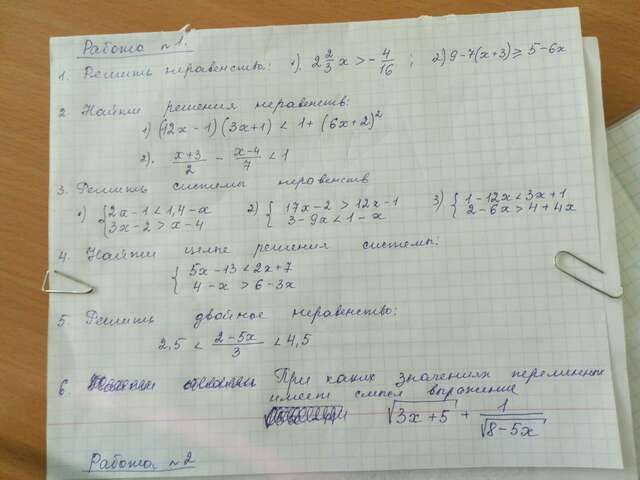 Работа №1.
1. Решить неравенство: 1). 2 2/3 x > - 4/16 ; 2) 9-7(x+3) ≥ 5-6x
2. Найти решения неравенств:
1) (12x-1)(3x+1) < 1+(6x+2)²
2). (x+3)/2 - (x-4)/7 < 1
3. Решить системы неравенств
1) { 2x-1<1,4-x 2) { 17x-2>12x-1 3) { 1-12x<3x+1
3x-2>x-4 3-9x<1-x 2-6x>4+4x
4. Найти целые решения системы:
{ 5x-13<2x+7
4-x>6-3x
5. Решить двойное неравенство:
2,5 < (2-5x)/3 < 4,5
6. При каких значениях переменных
имеет смысл выражение
√(3x+5) + 1/√(8-5x)
Работа №2